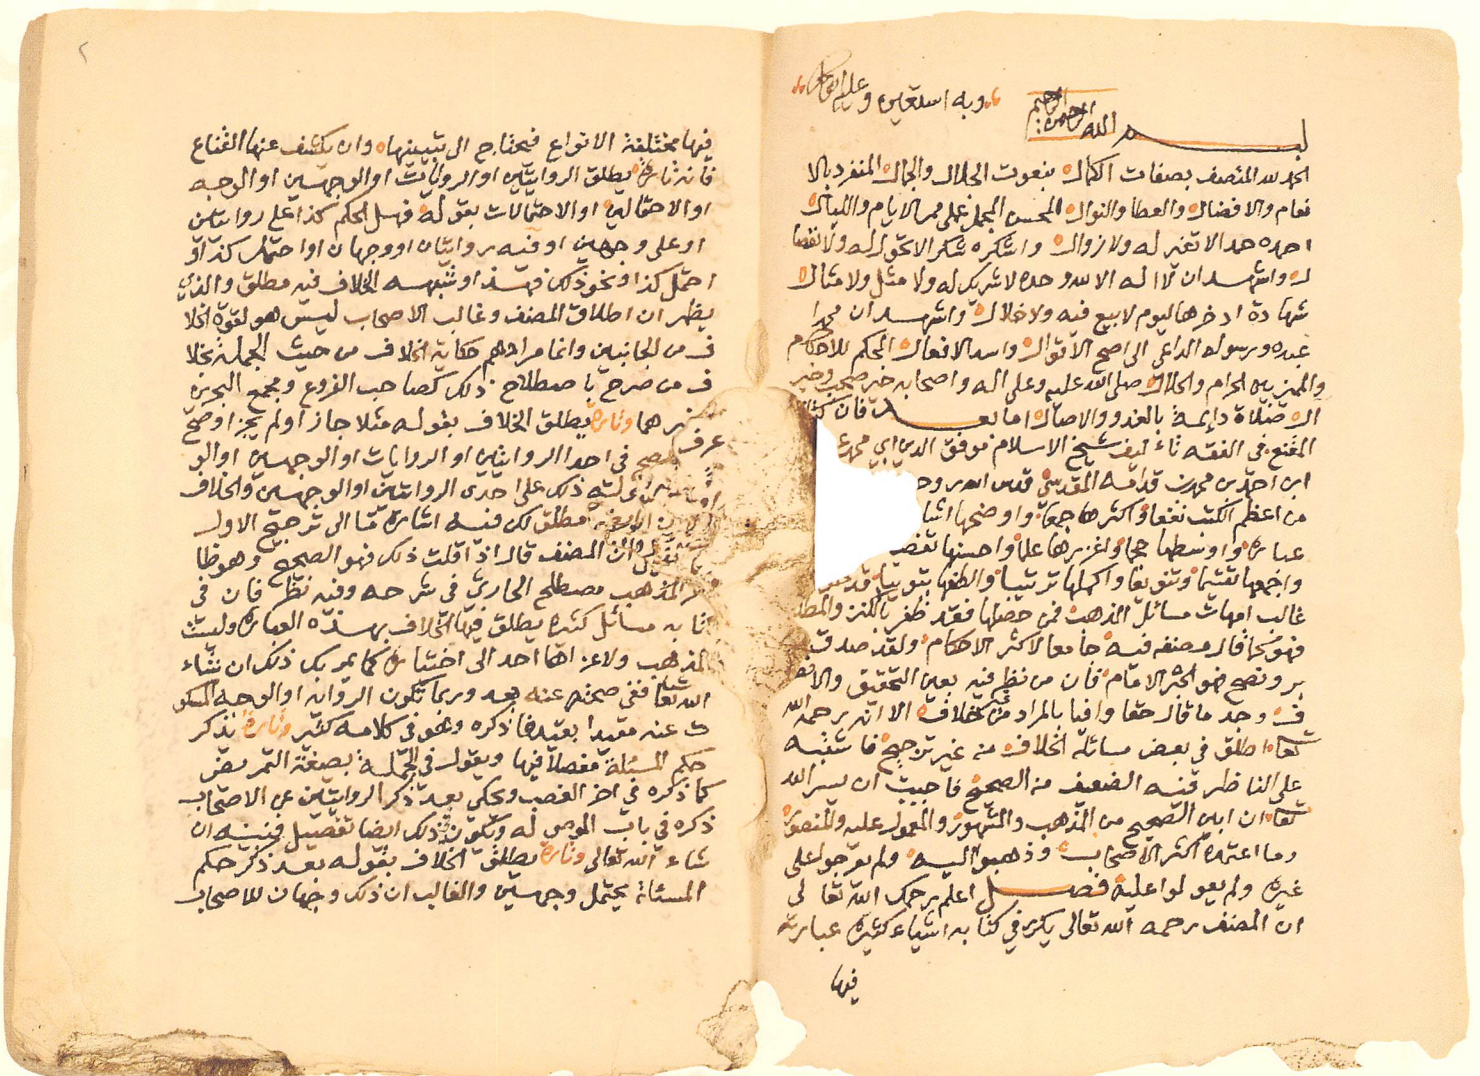 بسم الله الرحمن الرحيم وبه استعين وعليه اتوكل
الحمد لله المتصف بصفات الكمال المنعوت بنعوت الجلال والجمال المنفرد بالا
نعام والافضال والعطا والنوال المحسن المجمل على ممر الايام والليال
احمده حمدا لا تغير له ولا زوال واشكره شكرا لا تحول له ولا انفصا
ل واشهد ان لا اله الا الله وحده لا شريك له ولا مثل ولا مثال
شهادة ادخرها ليوم لا بيع فيه ولا خلال واشهد ان محمدا
عبده ورسوله الداعي الى اصح الاقوال واسد الافعال المحكم للاحكام
والمميز بين الحرام والحلال صلى الله عليه وعلى اله واصحابه خير صحب وخير
ال صلاة دايمة بالغدو والاصال اما بعد فان كتاب
المقنع في الفقه تاءليف شيخ الاسلام موفق الدين ابي محمد
ابن احمد بن محمد بن قدامه المقدسي قدس الله روحه
من اعظم الكتب نفعا واكثرها جمعا واوضحها اشا
عبارة واوسطها حجما واغزرها علما واحسنها تفصيلا
واجمعها تقسيما وتنويعا واكملها ترتيبا والطفها تبويبا قد حوى
غالب امهات مسائل المذهب فمن حصلها فقد ظفر بالكنز والمطلب
فهو كما قال مصنفه فيه جامعا لاكثر الاحكام ولقد صدق و
بر ونصح فهو الحبر الامام فان من نظر فيه بعين التحقيق والانصا
ف وجد ما قال حقا وافيا بالمراد من غير خلاف الا انه رحمه الله
تعالى اطلق في بعض مسائله الخلاف من غير ترجيح فاشتبه
على الناظر فيه الضعيف من الصحيح فاحببت ان يسر الله
تعالى ان ابين الصحيح من المذهب والمشهور والمعول عليه والمنصور
وما اعتمده اكثر الاصحاب وذهبوا اليه ولم يعرجوا على
غيره ولم يعولوا عليه فصل اعلم رحمك الله تعالى
ان المصنف رحمه الله تعالى يكرر في كتابه اشياء كثيرة عبارته
فيها
فيها مختلفة الانواع فيحتاج الى تبيينها وان يكشف عنها القناع
فانه تارة يطلق الروايتين او الروايات او الوجهين او الوجه
او الاحتمالين او الاحتمالات بقوله فهل الحكم كذا على روايتين
او على وجهين او فيه روايتان او وجهان او احتمل كذا او
احتمل كذا ونحو ذلك فهذا وشبهه الخلاف فيه مطلق والذي
يظهر ان اطلاق المصنف وغالب الاصحاب ليس هو لقوة الخلا
ف من الجانبين وانما مرادهم حكاية الخلاف من حيث الجملة بخلا
ف من صرح باصطلاح ذلك كصاحب الفروع ومجمع البحرين
وغيرهما وتارة يطلق الخلاف بقوله مثلا جاز او لم يجز او صح
في احدا الروايتين او الروايات او الوجهين او الو
ذلك على احدى الروايتين او الوجهين والخلاف
مطلق لكن فيه اشارة ما الى ترجيح الاول
ان المصنف قال اذا قلت ذلك فهو الصحيح وهو ظا
هر المذهب مصطلح الحارثي في شرحه وفيه نظر فان في
كتابه مسائل كثيرة يطلق فيها الخلاف بهذه العبارة وليست
المذهب ولا عزاها احد الى اختياره كما يمر بك ذلك ان شاء
الله تعالى ففي صحته عنه بعد وربما تكون الرواية او الوجه المسكو
ت عنه مقيدا بقيد فاذكره وهو في كلامه كثير وتارة يذكر
حكم المسئلة مفصلا فيها ويقول في الجملة بصيغة التمريض
كما ذكره في اخر الغصب ويحكي بعد ذكر الروايتين عن الاصحاب
ذكره في باب الموصى له ويكون في ذلك ايضا تفصيل فنبينه ان
شاء الله تعالى وتارة يطلق الخلاف بقوله بعد ذكر حكم
المسئلة يحتمل وجهين والغالب ان ذلك وجهان للاصحاب